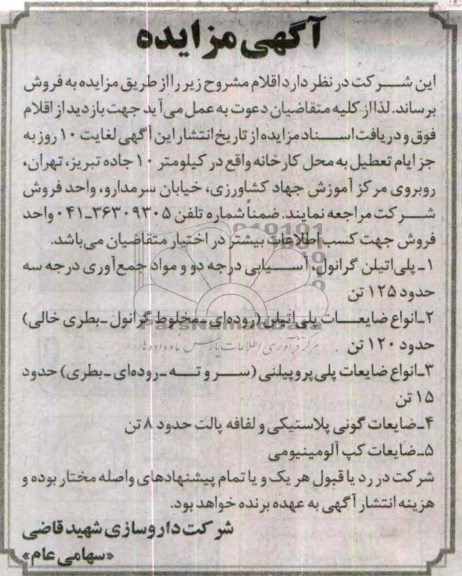 آگهی مزایده
این شرکت در نظر دارد اقلام مشروح زیر را از طریق مزایده به فروش
برساند. لذا از کلیه متقاضیان دعوت به عمل می‌آید جهت بازدید از اقلام
فوق و دریافت اسناد مزایده از تاریخ انتشار این آگهی لغایت ۱۰ روز به
جز ایام تعطیل به محل کارخانه واقع در کیلومتر ۱۰ جاده تبریز، تهران،
روبروی مرکز آموزش جهاد کشاورزی، خیابان سرمدارو، واحد فروش
شرکت مراجعه نمایند. ضمناً شماره تلفن ۳۶۳۰۹۳۰۵-۰۴۱ واحد
فروش جهت کسب اطلاعات بیشتر در اختیار متقاضیان می‌باشد.
۱ـ پلی‌اتیلن گرانول، آسیابی درجه دو و مواد جمع‌آوری درجه سه
حدود ۱۲۵ تن
۲ـ انواع ضایعات پلی‌اتیلن (روده‌ای ـ مخلوط گرانول ـ بطری خالی)
حدود ۱۲۰ تن
۳ـ انواع ضایعات پلی‌پروپیلنی (سر و ته ـ روده‌ای ـ بطری) حدود
۱۵ تن
۴ـ ضایعات گونی پلاستیکی و لفافه پالت حدود ۸ تن
۵ـ ضایعات کپ آلومینیومی
شرکت در رد یا قبول هر یک و یا تمام پیشنهادهای واصله مختار بوده و
هزینه انتشار آگهی به عهده برنده خواهد بود.
شرکت داروسازی شهید قاضی
«سهامی عام»